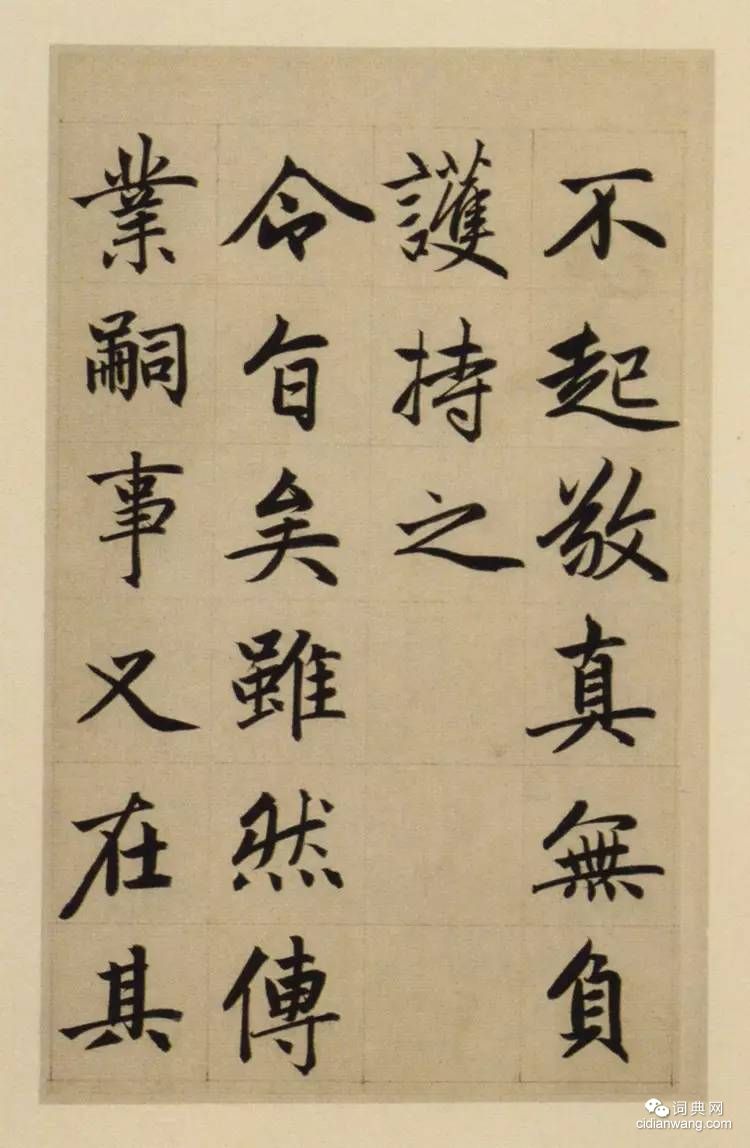 不起敬真無負
護持之
令旨矣雖然傳
業嗣事又在其
词典网
cidianwang.com